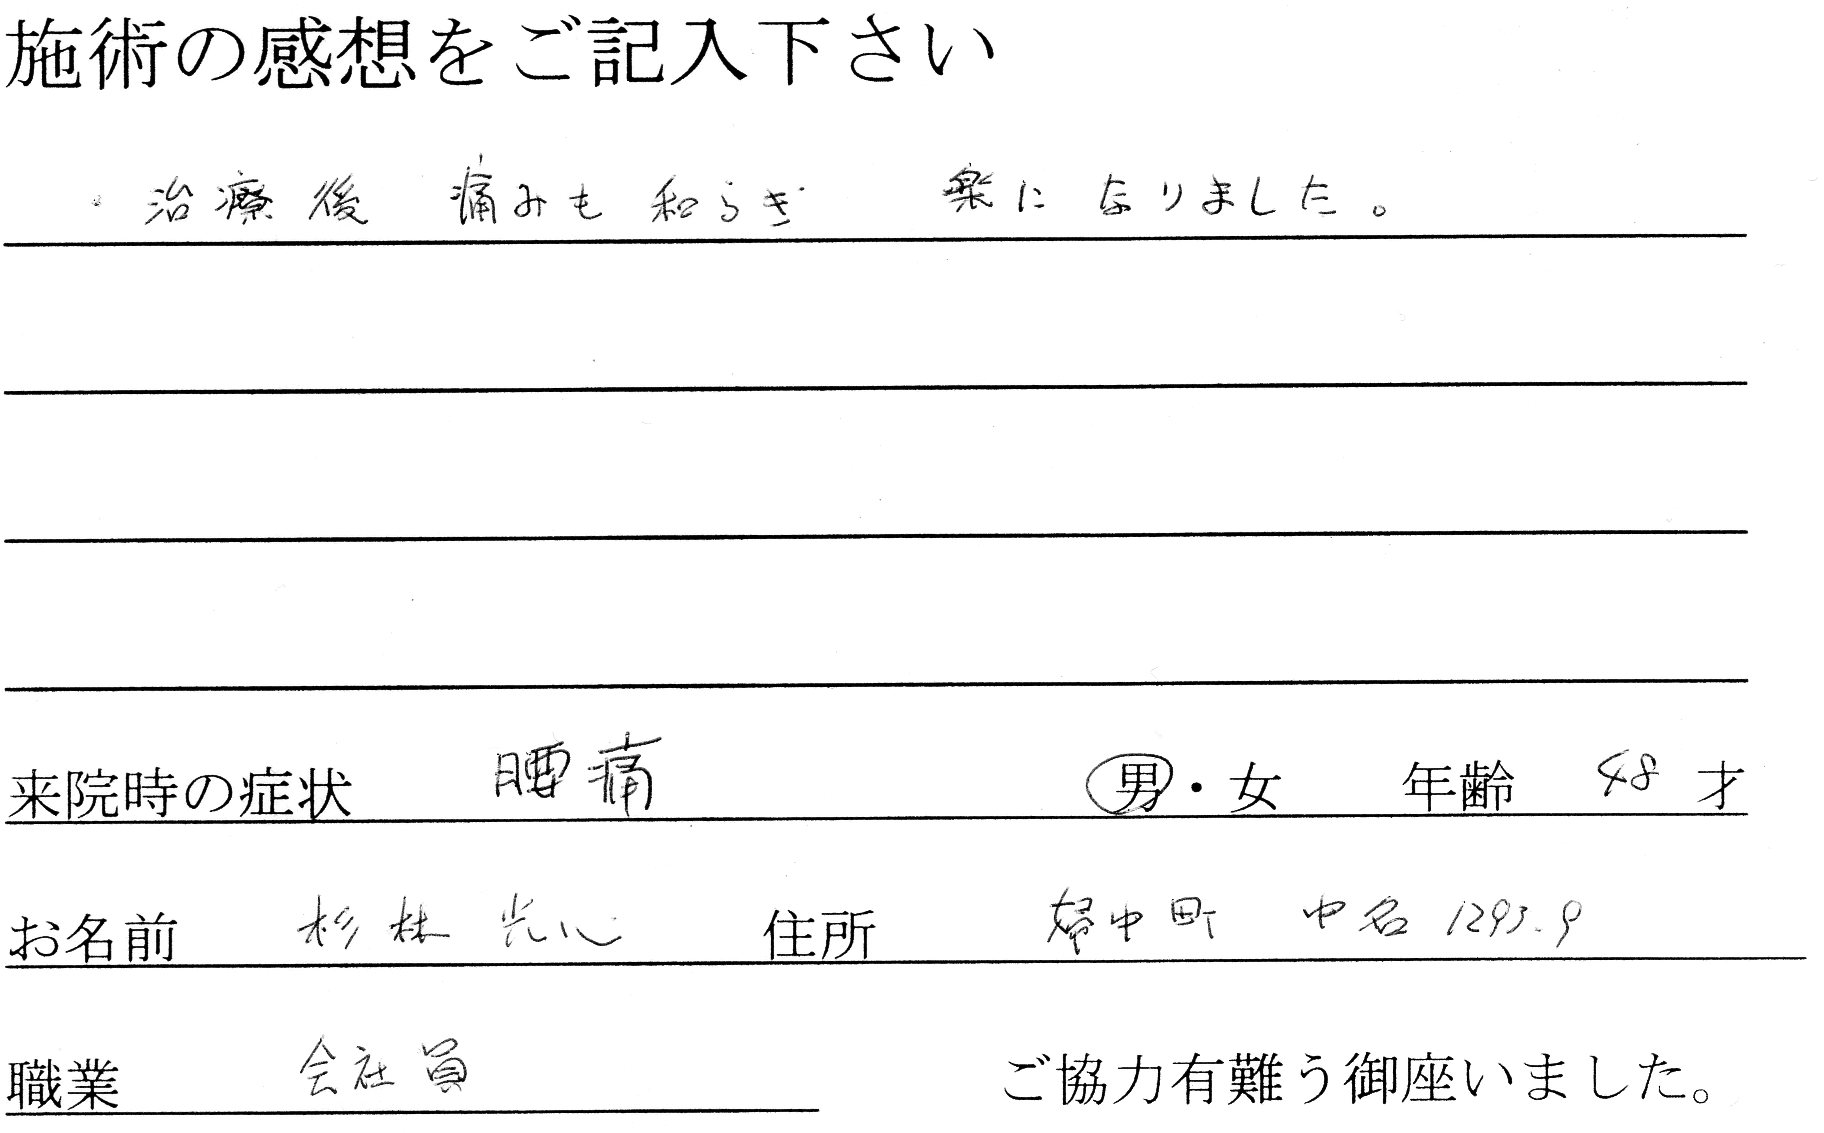 施術の感想をご記入下さい
・治療後 痛みも和らぎ 楽になりました。
来院時の症状 腰痛 男・女 年齢 48 才
お名前 杉林 光心 住所 婦中町 中名 1293.9
職業 会社員 ご協力有難う御座いました。